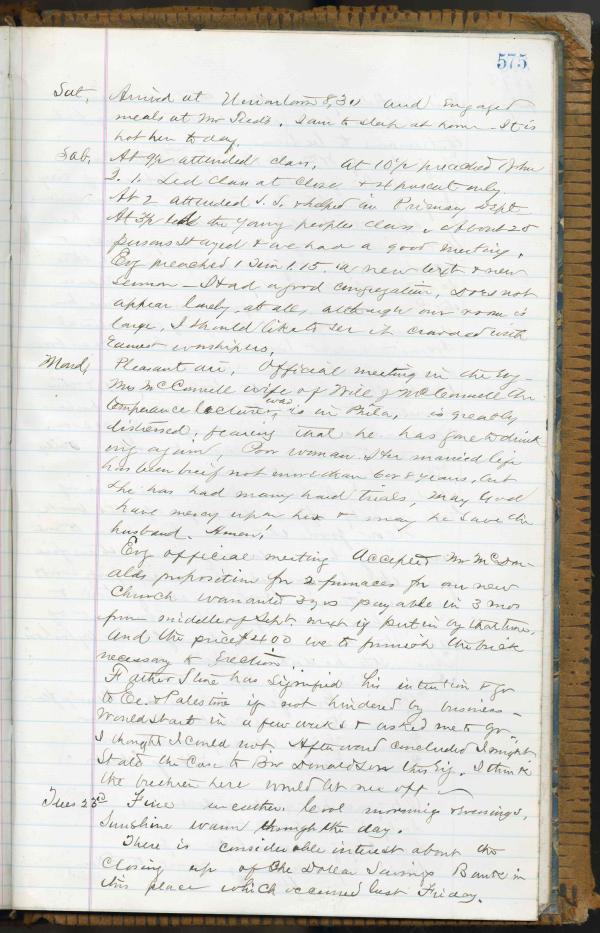 575
Sat, Arrived at Uniontown 8,30 and engaged
meals at Mr Red's. I am to sleep at home - It is
hot her to day.
Sab, At 9½ attended class, at 10½ preached John
3. 1. Led class at close & 4 present only.
At 2 attended S. S. & helped in Primary Dept.
At 3½ led the young peoples class. About 25
persons stayed & we had a good meeting.
Evg preached 1 Tim 1.15. a new text & new
Sermon - I had a good congregation, does not
appear lonely, at all, although our room is
large, I should like to see it crowded with
earnest worshipers,
Mond, Pleasant air, Official meeting in the Evg
Mrs McConnell wife of Will J McConnell the
temperance lecturer, was is in Phila, is greatly
distressed, fearing that he has gone to drink
ing again, Poor woman. Her married life
has been brief not more than 6 or 8 years, but
she has had many hard trials, May God
have mercy upon her & may he save the
husband. Amen!
Evg official meeting Accepted Mr McDon-
alds proposition for 2 furnaces for our new
Church warranted 3 yrs payable in 3 mos
from middle of Sept. next if put in by that time,
And the price $400 we to furnish the brick
necessary to Erection.
Father has signified his intention to go
to & Palestine if not hindered by business -
Would start in a few weeks & asked me to go.
I thought I could not. Afterward concluded I might
Stated the Case to Bro Donaldson this Evg. I think
the brethren here would let me off -
Tues 23d Fine weather. Cool mornings & evenings,
Sunshine warm through the day.
There is considerable interest about the
closing up of the Dollar Savings Bank in
this place which occurred last Friday.